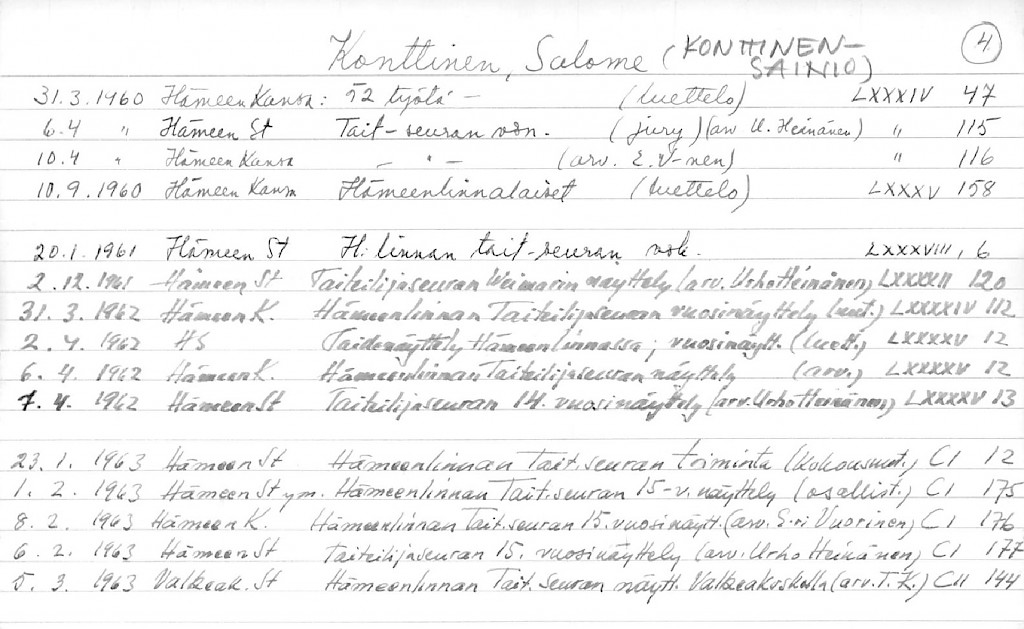 Konttinen, Salome (KONTTINEN-SAINIO) 4
31.3.1960 Hämeen Kansa: 52 työtä — (luettelo) LXXXIV 47
6.4 " Hämeen St Tait-seuran vsn. (jury) (arv U. Heinänen) " 115
10.4 " Hämeen Kansa — " — (arv. E.V-nen) " 116
10.9.1960 Hämeen Kansa Hämeenlinnalaiset (luettelo) LXXXV 158
20.1.1961 Hämeen St H:linnan tait-seuran vsk. LXXXVIII, 6
2.12.1961 Hämeen St Taiteilijaseuran Weimarin näyttely (arv. Urho Heinänen) LXXXXII 120
31.3.1962 Hämeen K. Hämeenlinnan Taiteilijaseuran vuosinäyttely (uut.) LXXXXIV 112
2.4.1962 HS Taidenäyttely Hämeenlinnassa; vuosinäytt. (luett.) LXXXXV 12
6.4.1962 Hämeen K. Hämeenlinnan Taiteilijaseuran näyttely (arv.) LXXXXV 12
7.4.1962 Hämeen St Taiteilijaseuran 14. vuosinäyttely (arv. Urho Heinänen) LXXXXV 13
23.1.1963 Hämeen St Hämeenlinnan Tait.seuran toiminta (kokousuut.) CI 12
1.2.1963 Hämeen St ym. Hämeenlinnan Tait.seuran 15-v. näyttely (osallist.) CI 175
8.2.1963 Hämeen K. Hämeenlinnan Tait.seuran 15.vuosinäytt. (arv. E-ri Vuorinen) CI 176
6.2.1963 Hämeen St Taiteilijaseuran 15. vuosinäyttely (arv. Urho Heinänen) CI 177
5.3.1963 Valkeak. St Hämeenlinnan Tait.seuran näytt. Valkeakoskella (arv. T.K.) CII 144